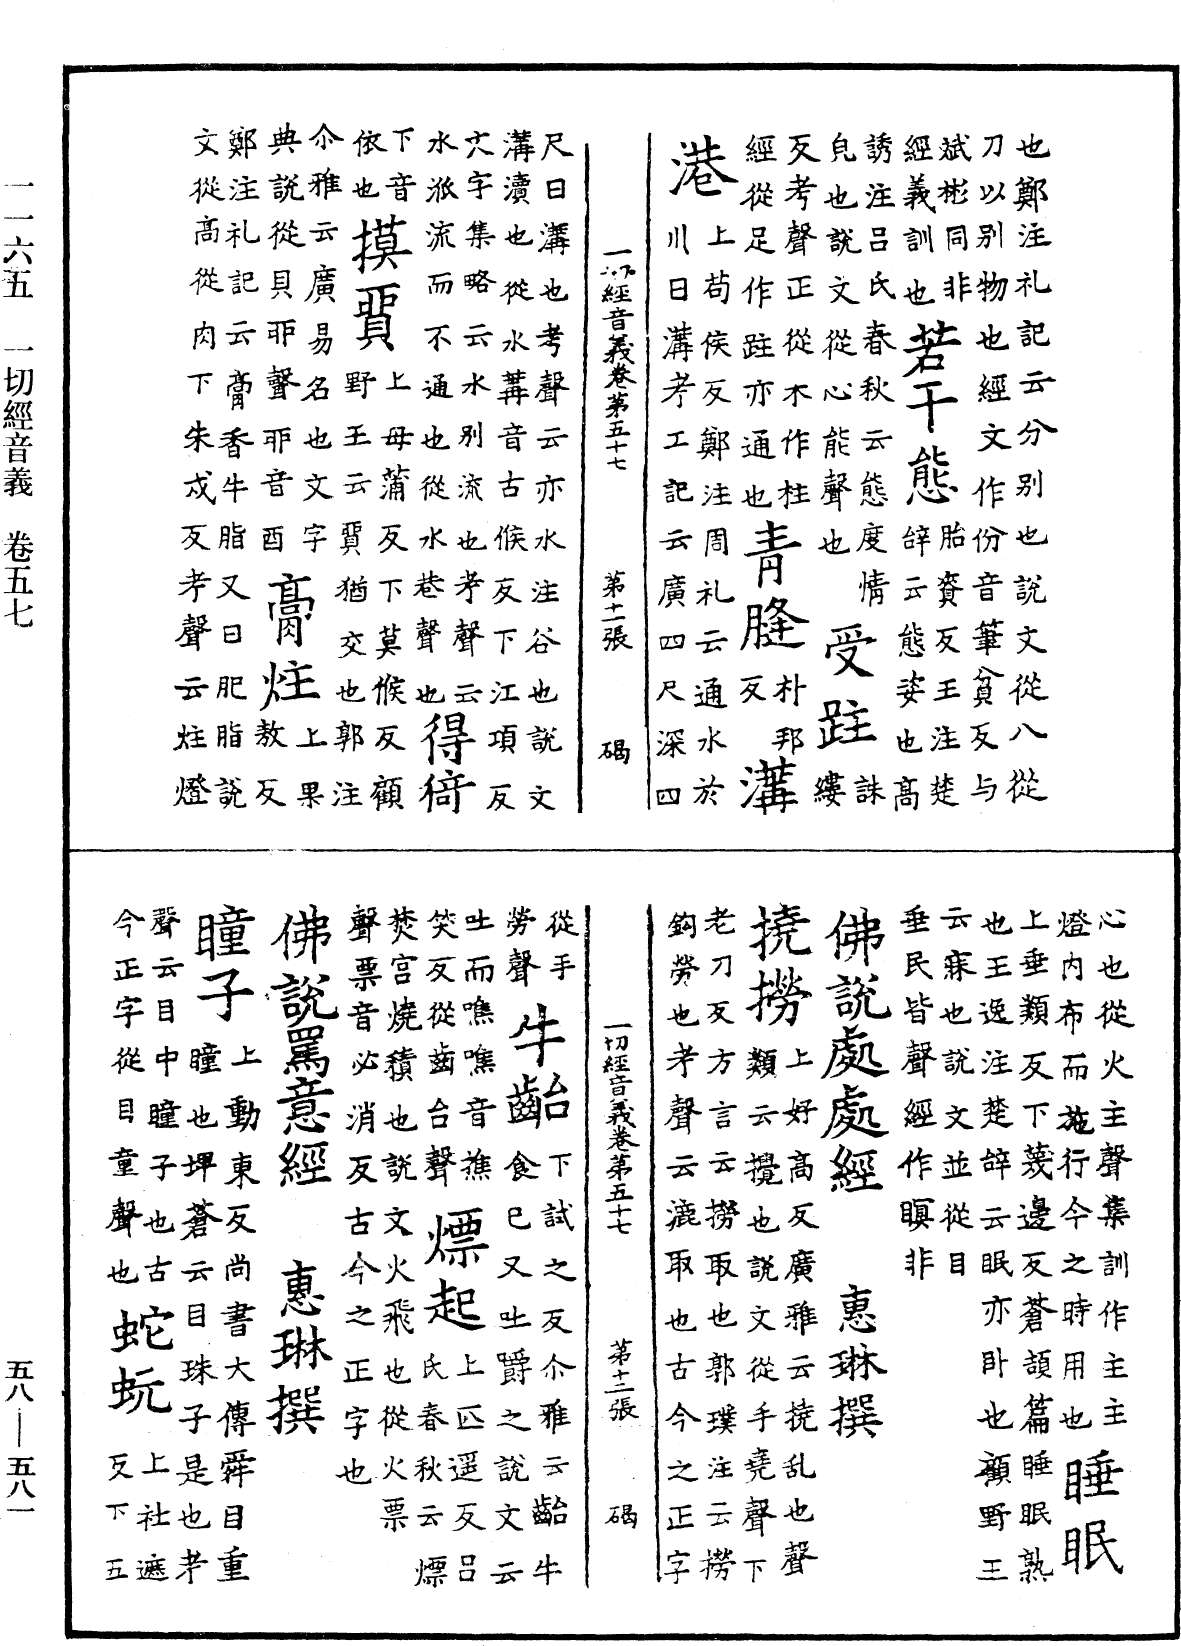 一一六五　一切經音義　卷五七
五八—五八一
也鄭注礼記云分别也說文從八從
刀以别物也經文作份音筆貧反与
斌彬同非
經義訓也　若干態　胎賚反王注楚
辞云態姿也高
誘注吕氏春秋云態度情
皃也說文從心能聲也　受跓　誅
縷
反考聲正從木作柱
經從足作跓亦通也　青䏺　朴邦
反　溝
港　上苟侯反鄭注周礼云通水於
川日溝考工記云廣四尺深四
一切經音義卷第五十七　第十一張　碣
尺日溝也考聲云亦水注谷也說文
溝瀆也從水冓音古候反下江項反
文字集略云水别流也考聲云
水派流而不通也從水巷聲也　得䘾
下音
依也　摸貿　上母蒲反下莫候反顧
野王云貿猶交也郭注
尒雅云廣易名也文字
典說從貝丣聲丣音酉　膏炷　上果
敖反
鄭注礼記云膏香牛脂又日肥脂說
文從高從肉下朱戍反考聲云炷燈
心也從火主聲集訓作主主
燈内布而施行今之時用也　睡眠
上垂類反下蔑邊反蒼頡篇睡眠熟
也王逸注楚辞云眠亦卧也顧野王
云寐也說文並從目
垂民皆聲經作瞑非
佛說處處經　惠琳撰
撓撈　上好高反廣雅云撓乱也聲
類云攪也說文從手堯聲下
老刀反方言云撈取也郭璞注云撈
鈎勞也考聲云漉取也古今之正字
一切經音義卷第五十七　第十二張　碣
從手
勞聲　牛齝　下試之反尒雅云齝牛
食已又吐嚼之說文云
吐而噍噍音樵
笑反從齒台聲　熛起　上匹遥反吕
氏春秋云熛
焚宫燒積也說文火飛也從火票
聲票音必消反古今之正字也
佛說罵意經　惠琳撰
瞳子　上動東反尚書大傳舜目重
瞳也埤蒼云目珠子是也考
聲云目中瞳子也古
今正字從目童聲也　蛇蚖　上社遮
反下五